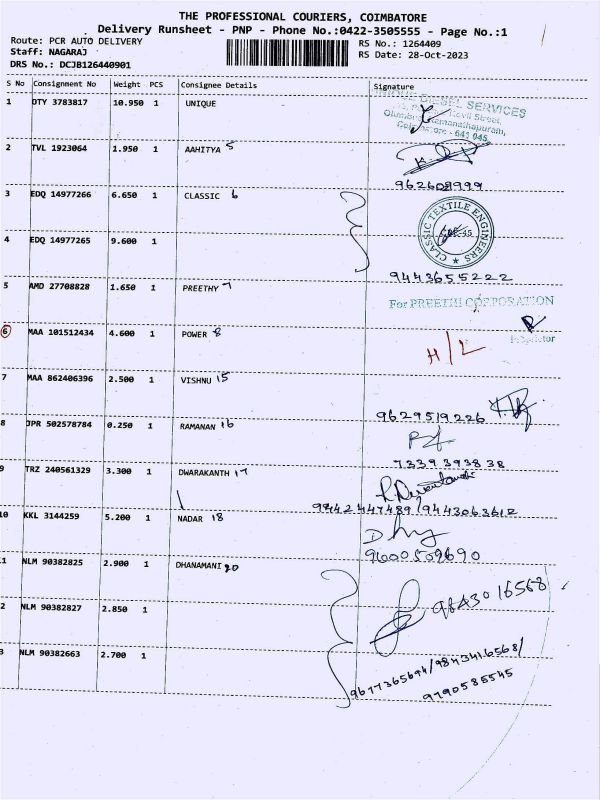 THE PROFESSIONAL COURIERS, COIMBATORE
Delivery Runsheet - PNP - Phone No.:0422-3505555 - Page No.:1
Route: PCR AUTO DELIVERY
Staff: NAGARAJ
DRS No.: DCJB126440901
RS No.: 1264409
RS Date: 28-Oct-2023
S No Consignment No Weight PCS Consignee Details Signature
1 DTY 3783817 10.950 1 UNIQUE
DIESEL SERVICES
Kovil Street,
Ramanathapuram,
Coimbatore - 641 045.
2 TVL 1923064 1.950 1 AAHITYA 5
962608999
3 EDQ 14977266 6.650 1 CLASSIC 6
CLASSIC TEXTILE ENGINEERS
4 EDQ 14977265 9.600 1
9443655222
5 AMD 27708828 1.650 1 PREETHY 7
For PREETHI CORPORATION
Proprietor
6 MAA 101512434 4.600 1 POWER 8
H/L
7 MAA 862406396 2.500 1 VISHNU 15
9629519226
8 JPR 502578784 0.250 1 RAMANAN 16
7339393838
9 TRZ 240561329 3.300 1 DWARAKANTH 17
9442447489/9443063612
10 KKL 3144259 5.200 1 NADAR 18
9600509690
1 NLM 90382825 2.900 1 DHANAMANI 20
9843016568
2 NLM 90382827 2.850 1
3 NLM 90382663 2.700 1
9677365694/9843416568/
9790585545